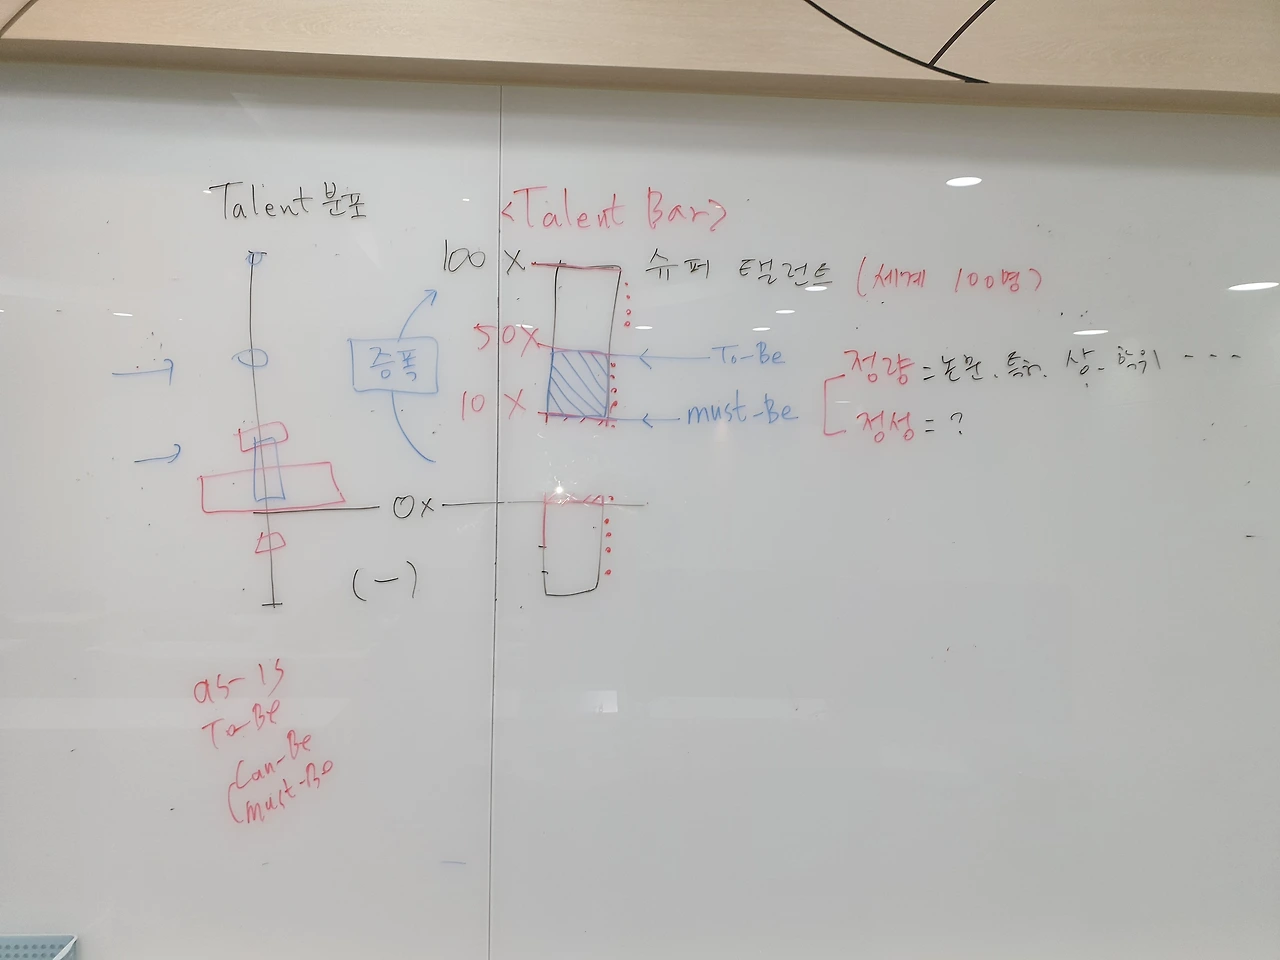 Talent 분포
<Talent Bar>
100 X 슈퍼 탤런트 (세계 100명)
50X
증폭
To-Be
정량 = 논문, 특허, 상, 학위 ---
10 X
must-Be
정성 = ?
0x
(-)
as-is
To-Be
Can-Be
must-Be